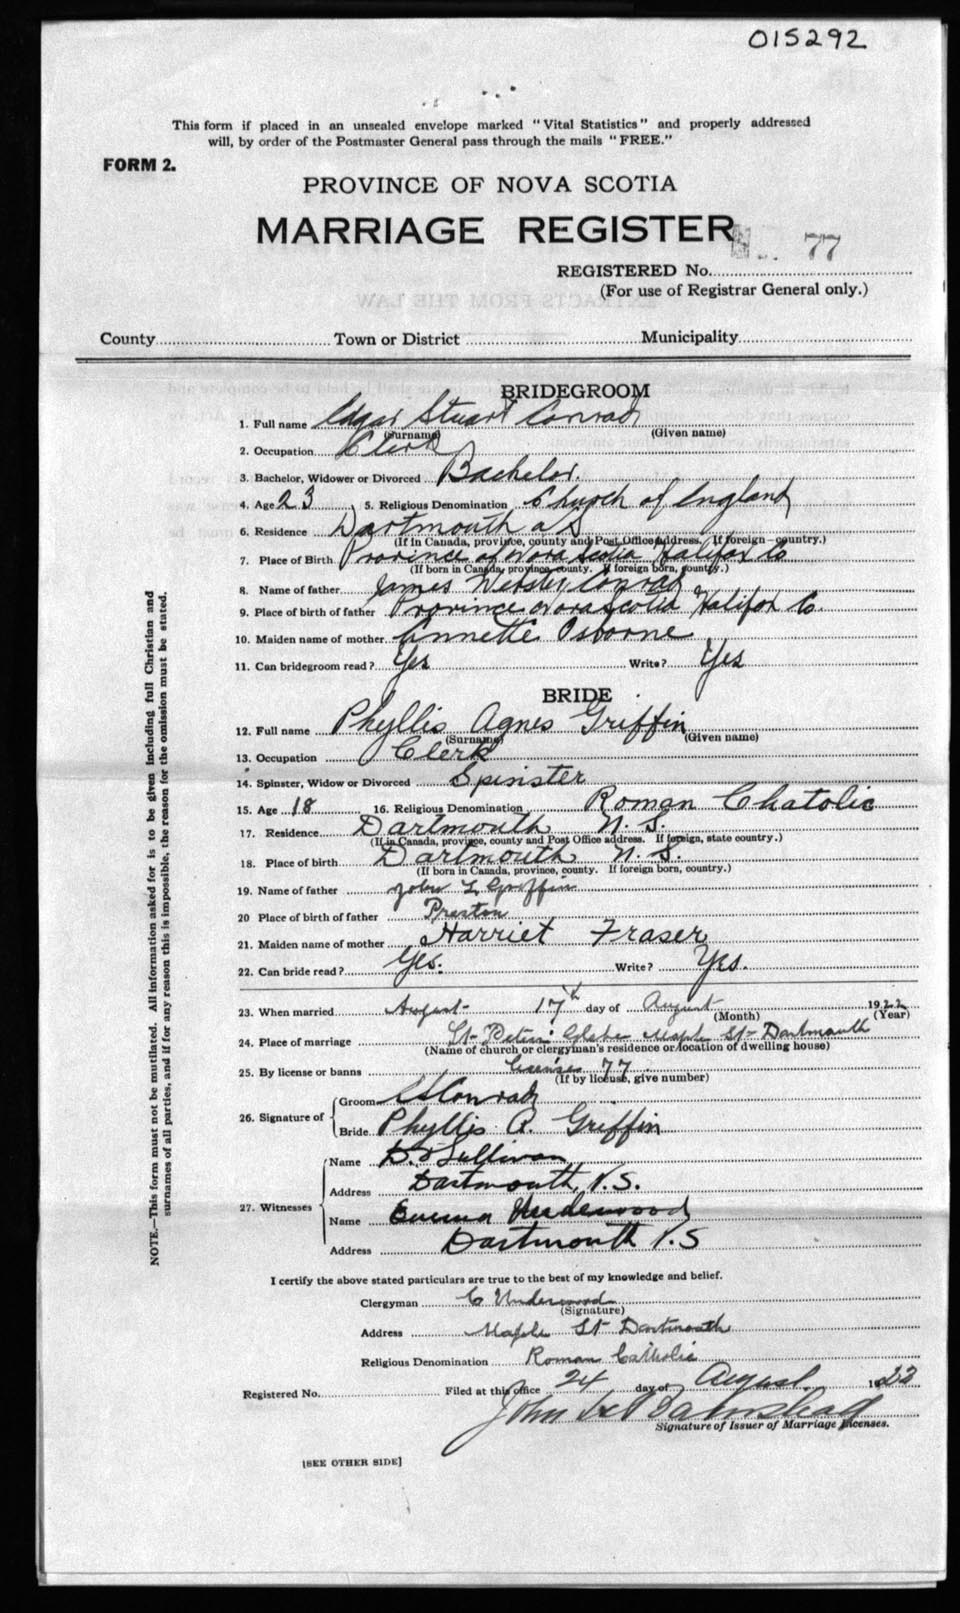 015292
This form if placed in an unsealed envelope marked "Vital Statistics" and properly addressed
will, by order of the Postmaster General pass through the mails "FREE."
FORM 2.
PROVINCE OF NOVA SCOTIA
MARRIAGE REGISTER
77
REGISTERED No.
(For use of Registrar General only.)
County Town or District Municipality
BRIDEGROOM
1. Full name Edgar Stuart Conrad
(Surname) (Given name)
2. Occupation Clerk
3. Bachelor, Widower or Divorced Bachelor.
4. Age 23 5. Religious Denomination Church of England
6. Residence Dartmouth n S
(If in Canada, province, county and Post Office address. If foreign country.)
7. Place of Birth Province of Nova Scotia Halifax Co
(If born in Canada, province, county. If foreign born, country.)
8. Name of father James Webster Conrad
9. Place of birth of father Province Nova Scotia Halifax Co.
10. Maiden name of mother Annette Osborne
11. Can bridegroom read? Yes Write? Yes
BRIDE
12. Full name Phyllis Agnes Griffin
(Surname) (Given name)
13. Occupation Clerk
14. Spinster, Widow or Divorced Spinster
15. Age 18 16. Religious Denomination Roman Chatolic
17. Residence Dartmouth N. S.
(If in Canada, province, county and Post Office address. If foreign, state country.)
18. Place of birth Dartmouth N. S.
(If born in Canada, province, county. If foreign born, country.)
19. Name of father John L Griffin
20 Place of birth of father Preston
21. Maiden name of mother Harriet Fraser
22. Can bride read? Yes. Write? Yes.
23. When married August 17th day of August 1922
(Month) (Year)
24. Place of marriage St Peters Glebe Maple St Dartmouth
(Name of church or clergyman's residence or location of dwelling house)
25. By license or banns License 77
(If by license, give number)
26. Signature of Groom ES Conrad
Bride Phyllis A. Griffin
27. Witnesses
Name D. O'Sullivan
Address Dartmouth, N.S.
Name Emma Underwood
Address Dartmouth N.S
I certify the above stated particulars are true to the best of my knowledge and belief.
Clergyman C Underwood
(Signature)
Address Maple St Dartmouth
Religious Denomination Roman Catholic
Registered No. Filed at this office 24 day of August 1922
John
Signature of Issuer of Marriage Licenses.
[SEE OTHER SIDE]
NOTE.—This form must not be mutilated. All information asked for is to be given including full Christian and
surnames of all parties, and if for any reason this is impossible, the reason for the omission must be stated.